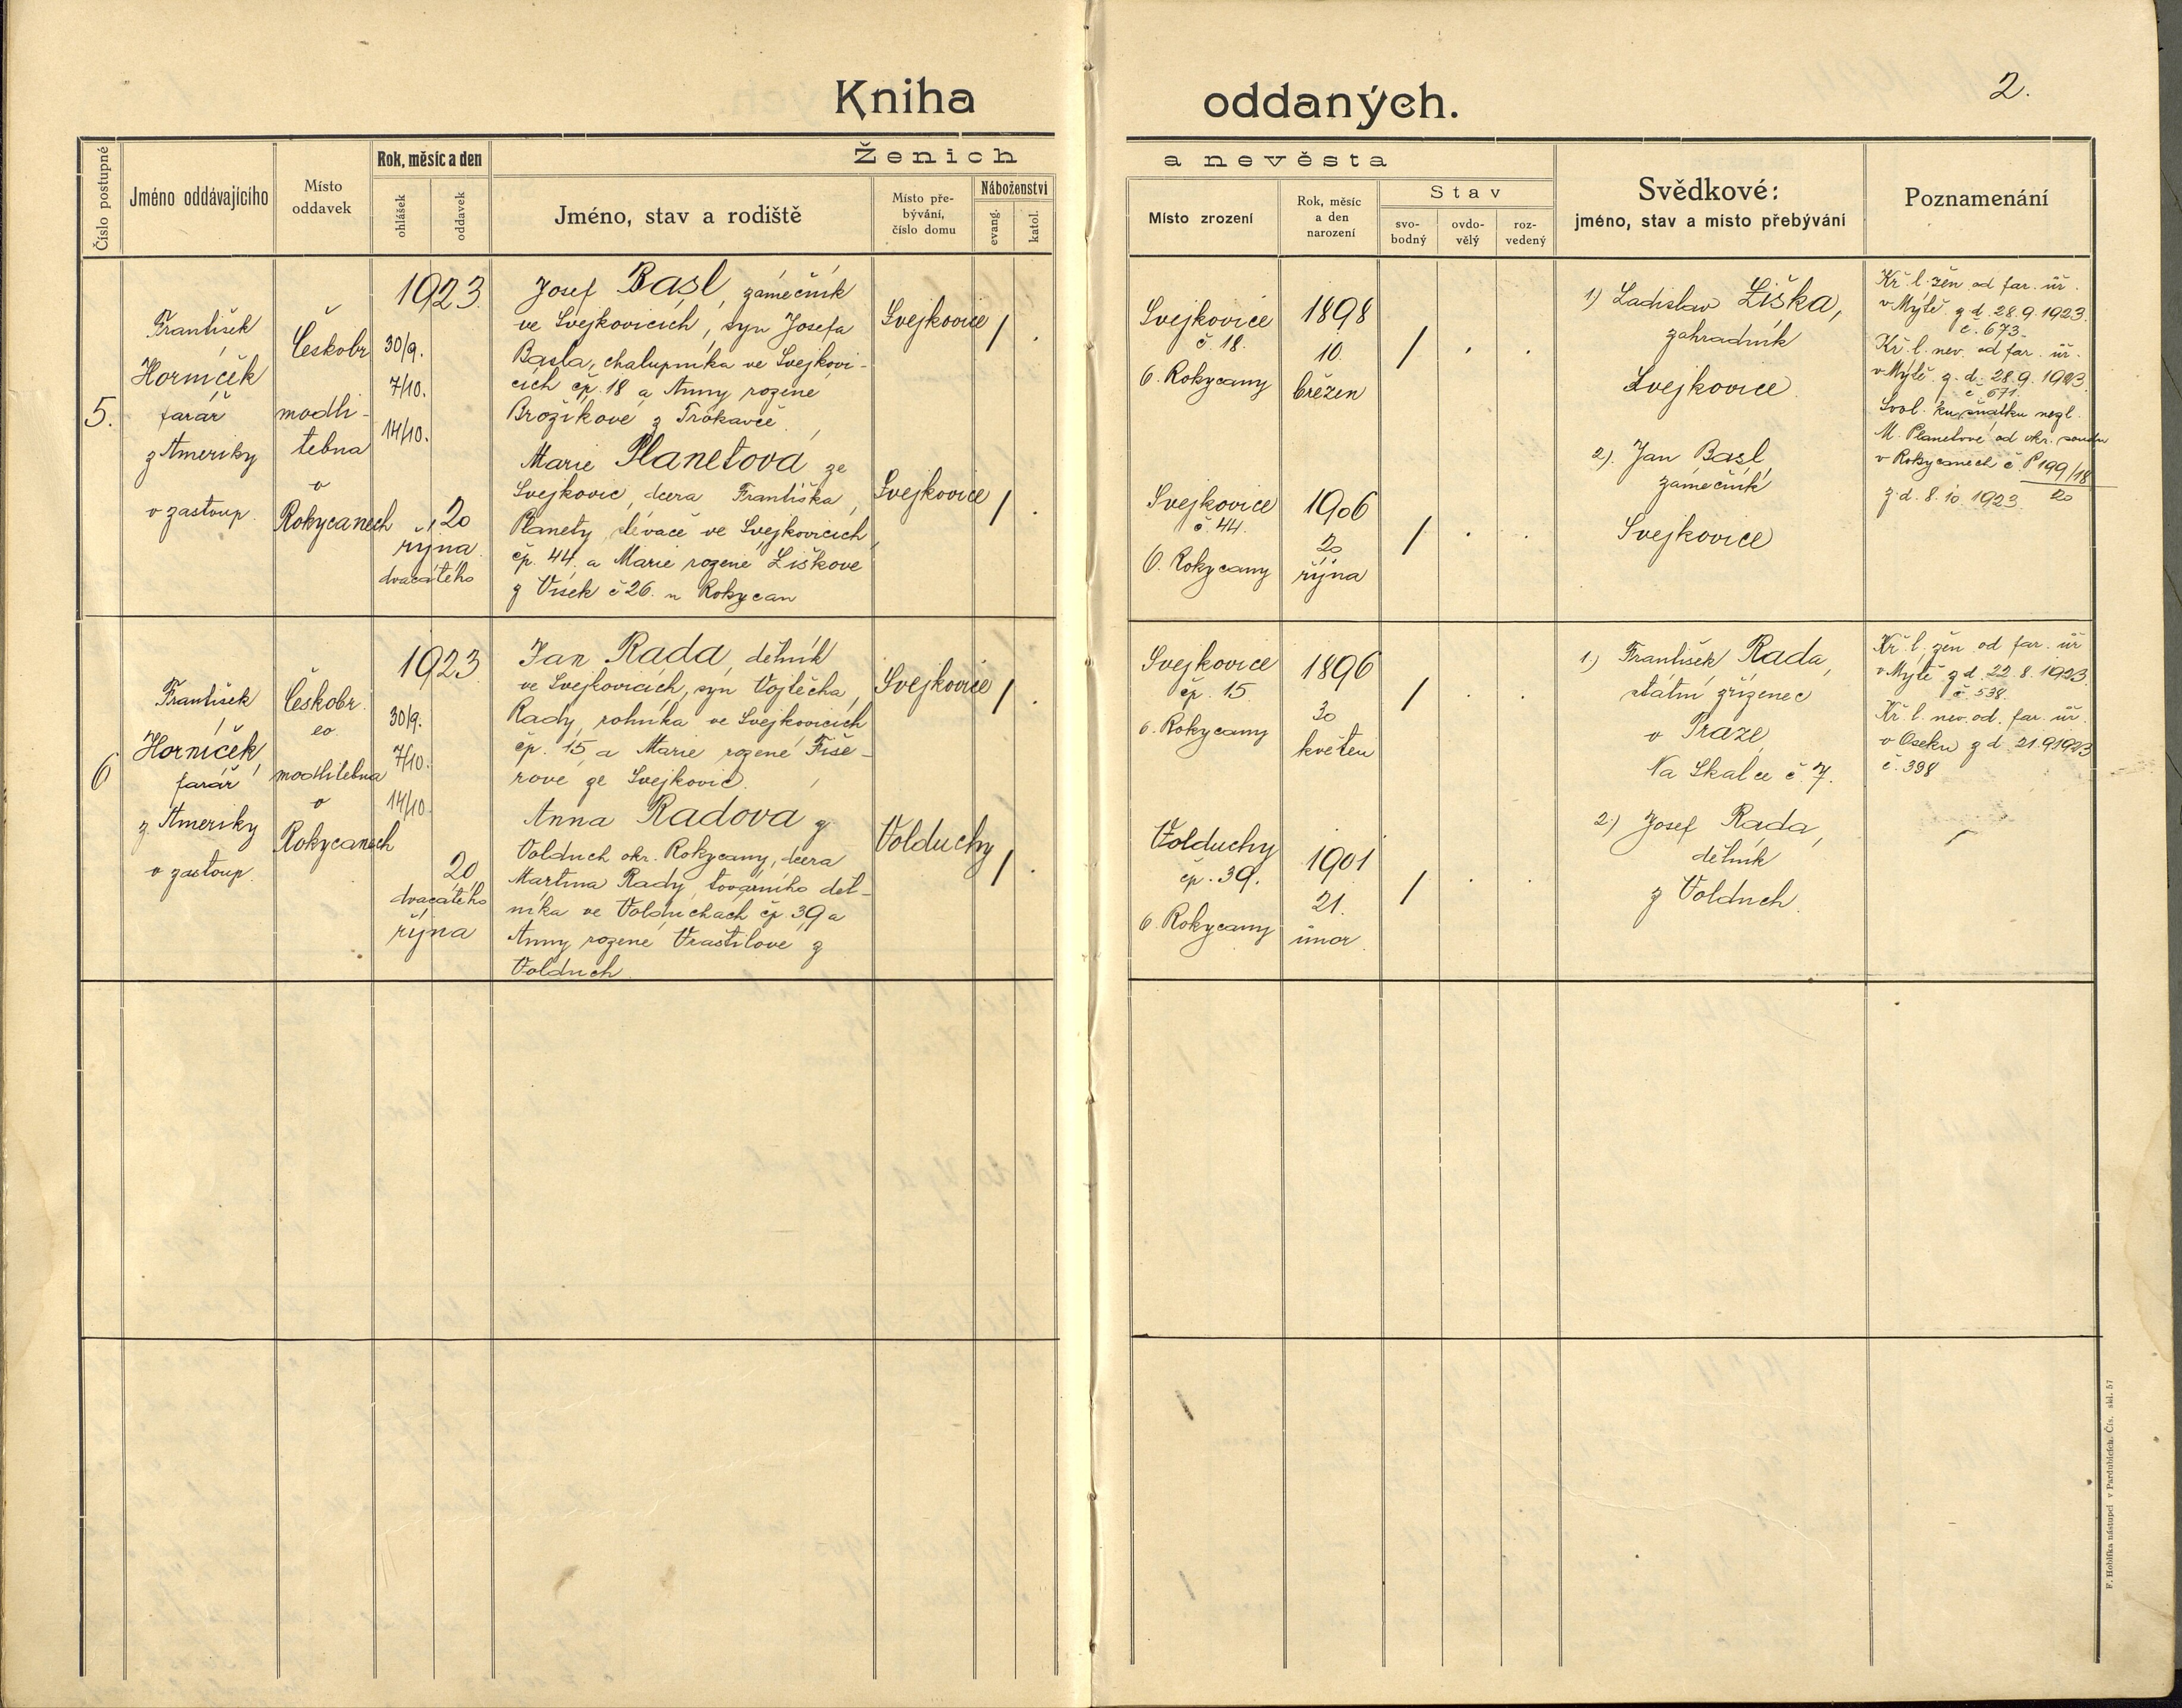 Kniha oddaných.
2.
Číslo postupné
Jméno oddávajícího
Místo
oddavek
Rok, měsíc a den
ohlášek
oddavek
Ženich a nevěsta
Jméno, stav a rodiště
Místo pře-
bývání,
číslo domu
Náboženství
evang.
katol.
Místo zrození
Rok, měsíc
a den
narození
Stav
svo-
bodný
ovdo-
vělý
roz-
vedený
Svědkové:
jméno, stav a místo přebývání
Poznamenání
5.
František
Horníček
farář
z Ameriky
v zastoup.
Českobr.
modli-
tebna
v
Rokycanech
1923
30/9.
7/10.
14/10.
20
října
dvacátého
Josef Basl, zámečník
ve Svejkovicích, syn Josefa
Basla, chalupníka ve Svejkovi-
cích čp. 18 a Anny rozené
Brožíkové z Trokavče.
Marie Planetová ze
Svejkovic, dcera Františka
Planety, slévače ve Svejkovicích,
čp. 44. a Marie rozené Liškové
z Vísek č 26. u Rokycan
Svejkovice
/ .
Svejkovice
/ .
Svejkovice
č. 18.
o. Rokycany
1898
10.
březen
/ . .
Svejkovice
č. 44.
o. Rokycany
1906
20
října
/ . .
1) Ladislav Liška,
zahradník
Svejkovice
2). Jan Basl,
zámečník
Svejkovice
Kř. l. žen. od far. úř.
v Mýtě z d. 28.9.1923.
č. 673.
Kř. l. nev. od far. úř.
v Mýtě z. d. 28.9.1923.
č 671.
Svol. ku sňatku nezl.
M. Planetové od okr. soudu
v Rokycanech č. P 199/18
20
z d. 8. 10. 1923.
6
František
Horníček,
farář
z Ameriky
v zastoup.
Českobr.
ev.
modlitebna
v
Rokycanech
1923
30/9.
7/10.
14/10.
20
dvacátého
října
Jan Rada, dělník
ve Svejkovicích, syn Vojtěcha
Rady, rolníka ve Svejkovicích
čp. 15, a Marie rozené Fiše-
rové ze Svejkovic.
Anna Radová z
Volduch okr. Rokycany, dcera
Martina Rady, továrního děl-
níka ve Volduchách čp. 39 a
Anny rozené Vraštilové z
Volduch
Svejkovice
/ .
Volduchy
/ .
Svejkovice
čp. 15
o. Rokycany
1896
30
květen
/ . .
Volduchy
čp. 39.
o. Rokycany
1901
21.
únor
/ . .
1.) František Rada,
státní zřízenec
v Praze,
Na Skalce č 7.
2.) Josef Rada,
dělník
z Volduch.
Kř. l. žen od far. úř
v Mýtě z d. 22. 8. 1923.
č 538.
Kř. l. nev. od. far. úř.
v Oseku z d. 21.9.1923
č. 398
F. Hoblíka nástupci v Pardubicích. Čís. skl. 57